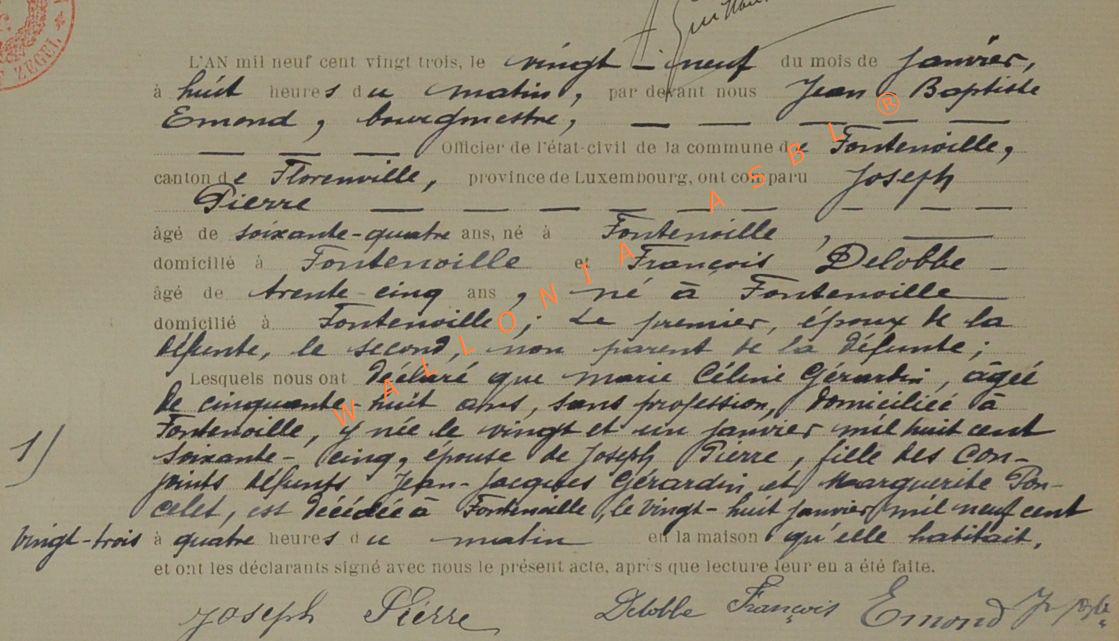 ZEGEL
L'AN mil neuf cent vingt trois, le vingt-neuf du mois de janvier,
à huit heures du matin, par devant nous Jean Baptiste
Emond, bourgmestre, — — — — — —
— — — Officier de l'état-civil de la commune de Fontenoille,
canton de Florenville, province de Luxembourg, ont comparu Joseph
Pierre — — — — — — — — —
âgé de soixante-quatre ans, né à Fontenoille, —
domicilié à Fontenoille et François Delobbe —
âgé de trente-cinq ans, né à Fontenoille
domicilié à Fontenoille; Le premier, époux de la
défunte, le second, non parent de la défunte;
Lesquels nous ont déclaré que Marie Céline Gérardin, âgée
de cinquante huit ans, sans profession, domiciliée à
Fontenoille, y née le vingt et un janvier mil huit cent
soixante-cinq, épouse de Joseph Pierre, fille des con-
joints défunts Jean-Jacques Gérardin et Marguerite Pon-
celet, est décédée à Fontenoille, le vingt-huit janvier mil neuf cent
1)
vingt-trois à quatre heures du matin en la maison qu'elle habitait.
et ont les déclarants signé avec nous le présent acte, après que lecture leur en a été faite.
Joseph Pierre Delobbe François Emond
WALLONIA ASBL ®